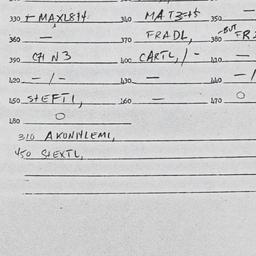 330 + MAXL814 340 MAT3=+5 350
360 — 370 FRADL, 380 -BUT FR
390 C71 N3 400 CARTL, / - 410 —
420 - / - 430 — 440 - /
450 StEFTI, 460 — 470 O
O
480
310 AKONYLEMI,
450 StEXTL,